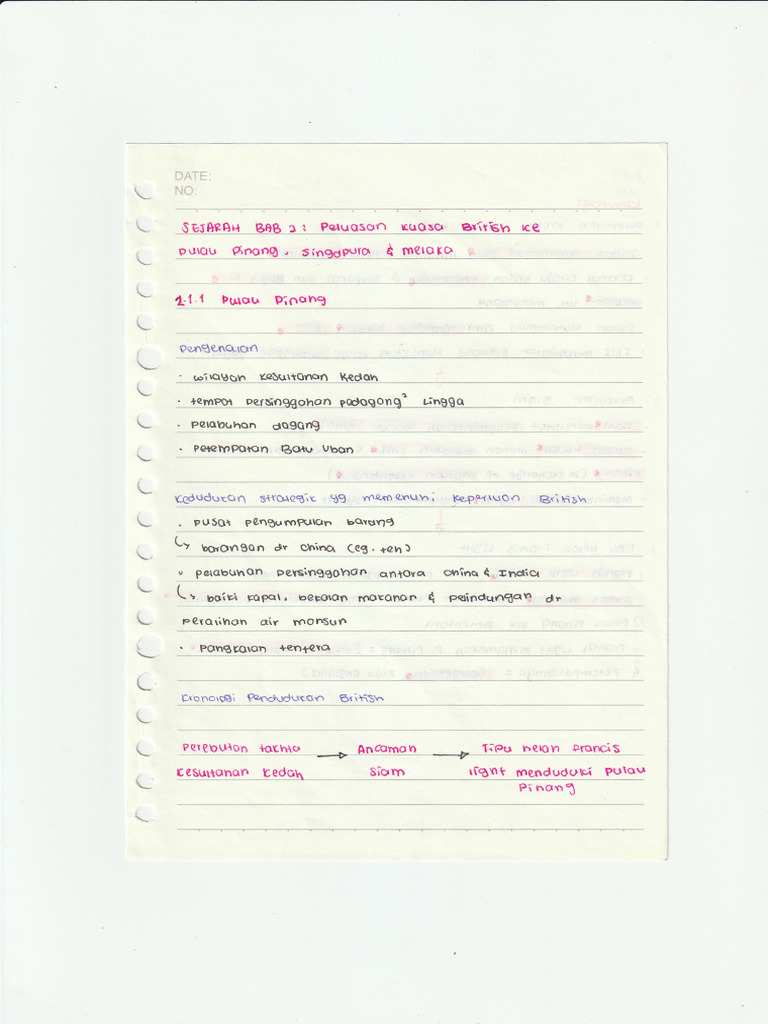 DATE:
NO:
SEJARAH BAB 2: Peluasan kuasa British ke
pulau pinang, singapura & melaka
2.1.1 Pulau Pinang
Pengenalan
· wilayah kesultanan Kedah
· tempat persinggahan pedagang² Lingga
· pelabuhan dagang
· Petempatan Batu Uban
Kedudukan strategik yg memenuhi keperluan British
· pusat pengumpulan barang
↳ barangan dr china (eg. teh)
· pelabuhan persinggahan antara china & India
↳ baiki kapal, bekalan makanan & pelindungan dr
peralihan air monsun
· pangkalan tentera
Kronologi Pendudukan British
Perebutan takhta → Ancaman → Tipu helah francis
kesultanan Kedah siam light menduduki pulau
Pinang